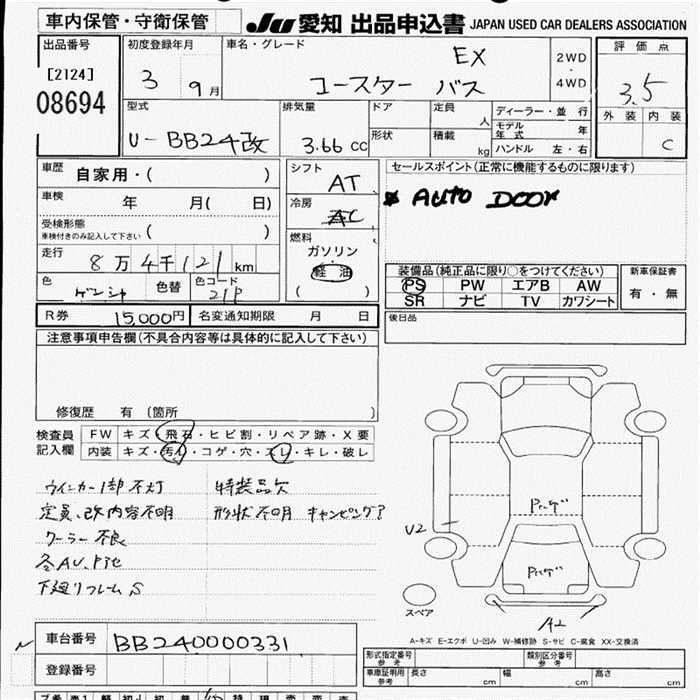 車内保管・守衛保管
JU 愛知 出品申込書 JAPAN USED CAR DEALERS ASSOCIATION
出品番号
[2124]
08694
初度登録年月
3 9月
車名・グレード
EX
コースター バス
2WD
・
4WD
評価点
3.5
外装 内装
C
型式
U-BB24改
排気量
3.66 cc
ドア
形状
定員 人
積載 kg
ディーラー・並行
モデル年式 年
ハンドル 左・右
車歴 自家用・( )
車検 年 月( 日)
受検形態
車検付きのみ記入して下さい ( )
走行
8万4千121 km
色
ゲンシャ
色替
色コード
21P
シフト
AT
冷房
AC
燃料
ガソリン
軽油
( )
セールスポイント(正常に機能するものに限ります)
AUTO DOOR
装備品(純正品に限り○をつけてください)
PS PW エアB AW
SR ナビ TV カワシート
新車保証書
有・無
R券 15,000円
名変通知期限 月 日
後日品
注意事項申告欄(不具合内容等は具体的に記入して下さい)
修復歴 有 (箇所 )
検査員
記入欄
FW キズ・飛石・ヒビ割・リペア跡・X要
内装 キズ・汚れ・コゲ・穴・スレ・キレ・破レ
ウインカー1部不灯 特装品欠
定員、改内容不明 形状不明 キャンピング?
クーラー不良
冬AU、
下廻りフレームS
U2
A2
スペア
A-キズ E-エクボ U-凹み W-補修跡 S-サビ C-腐食 XX-交換済
車台番号 BB240000331
登録番号
形式指定番号
参考
類別区分番号
参考
車庫証明用
参考
長さ cm
幅 cm
高さ cm